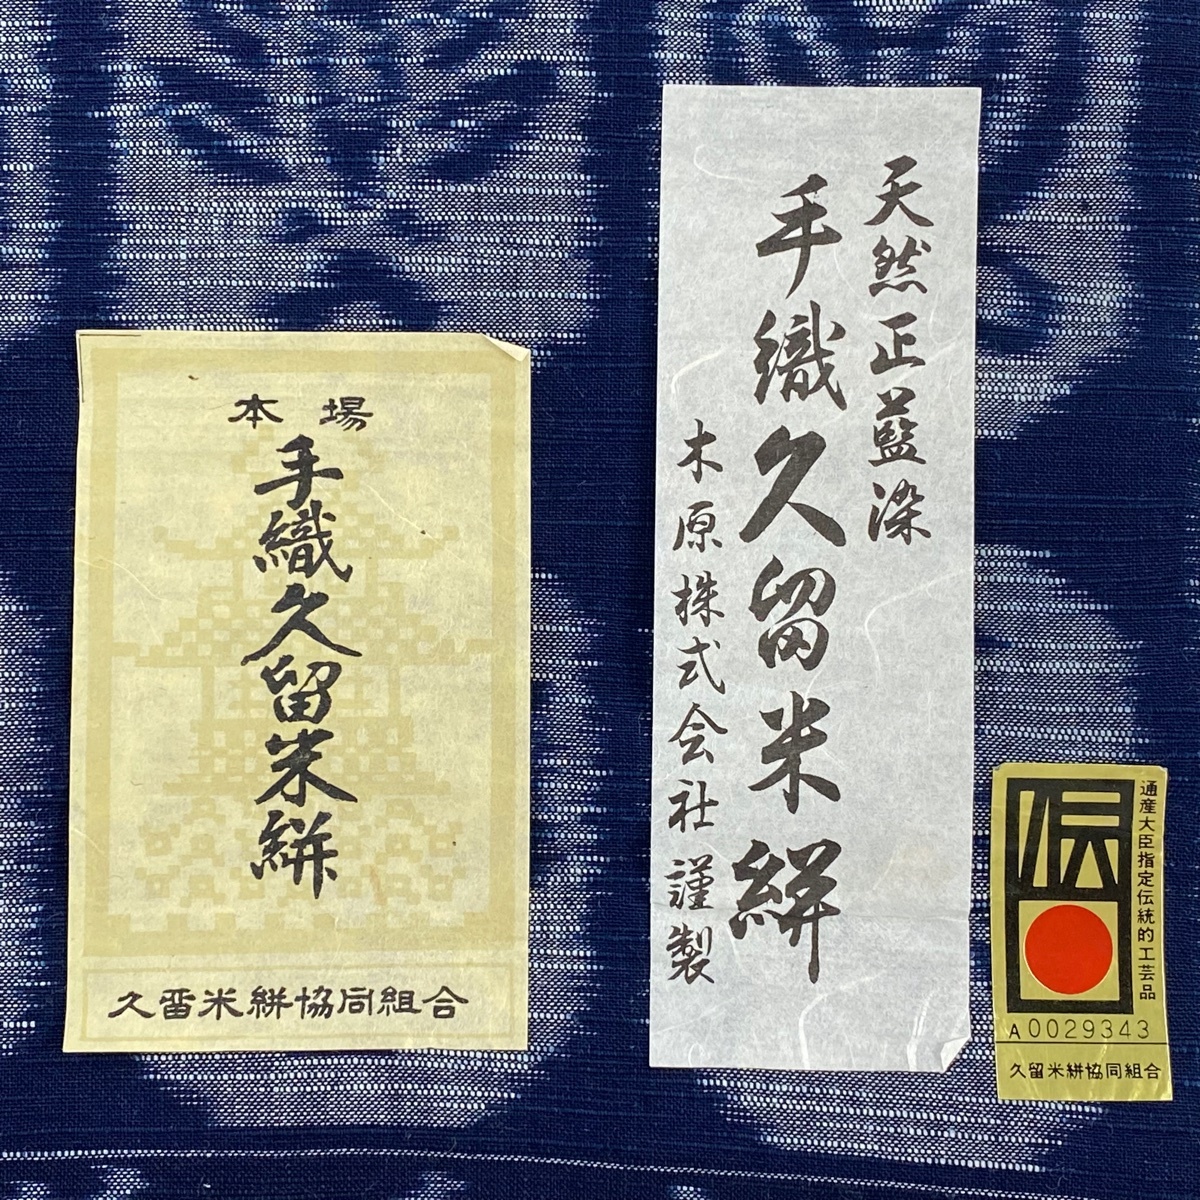 本場
手織久留米絣
久畄米絣協同組合
天然正藍染
手織久留米絣
木原株式会社謹製
伝
通産大臣指定伝統的工芸品
A0029343
久留米絣協同組合